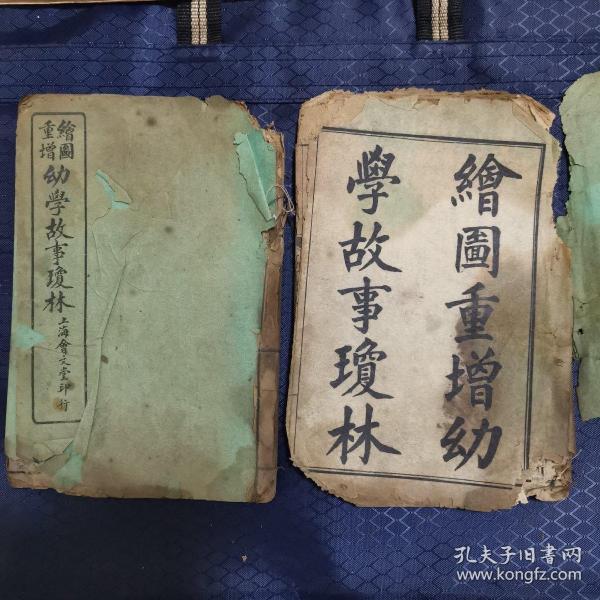 繪圖
重增
幼學故事瓊林
上海會文堂印行
繪圖重增幼
學故事瓊林
孔夫子旧书网
www.kongfz.com